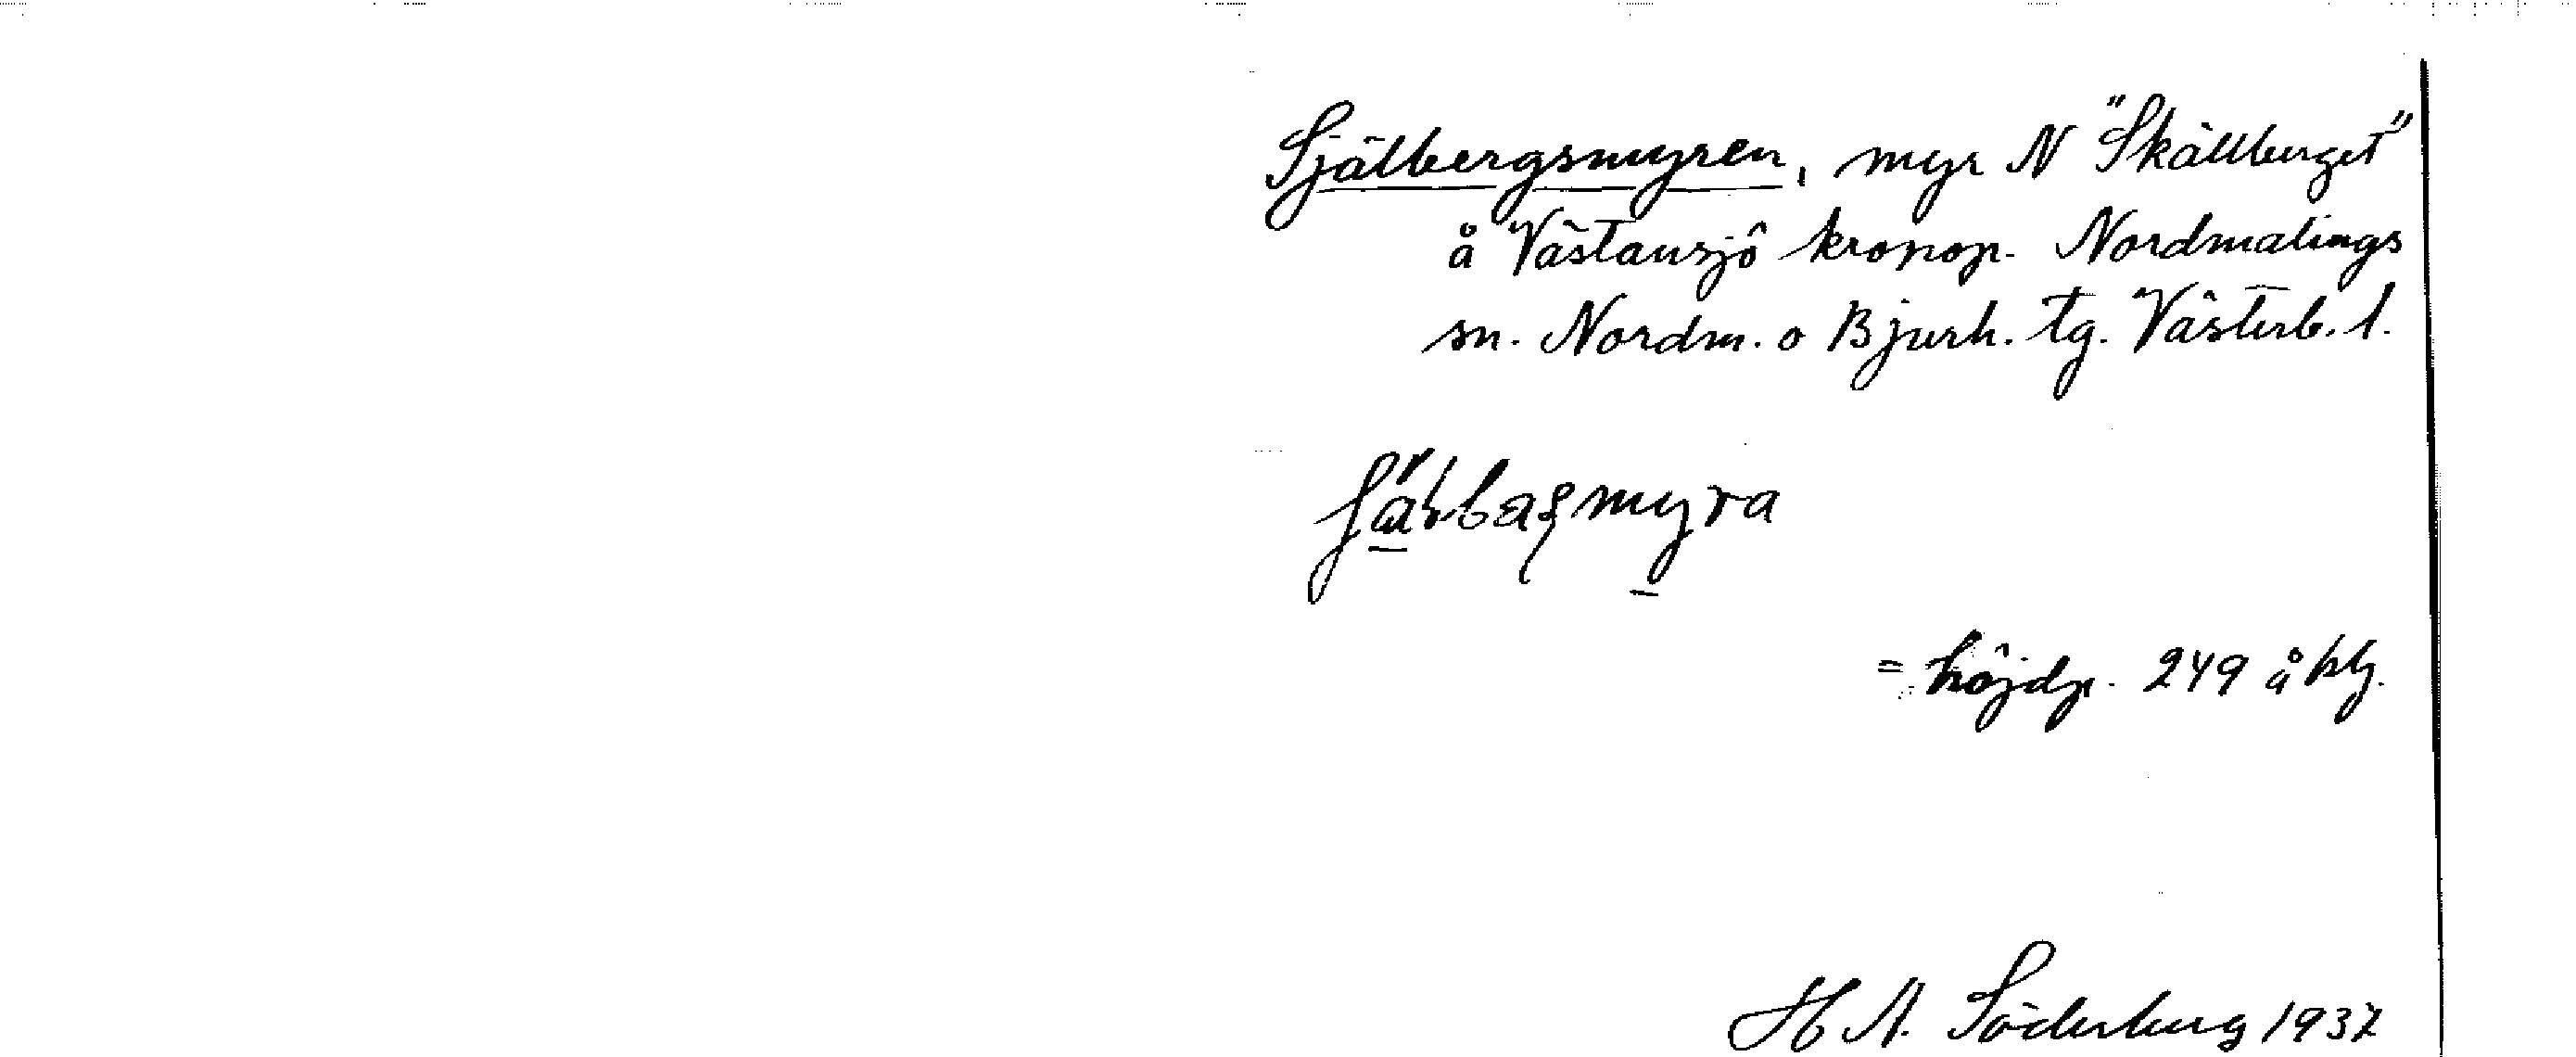 Själbergsmyren, myr N "Skällberget"
å Västansjö kronop. Nordmalings
sn. Nordm. o Bjurh. tg. Västerb. l.
= höjdp. 249 å kbl.
H A. Söderberg 1937